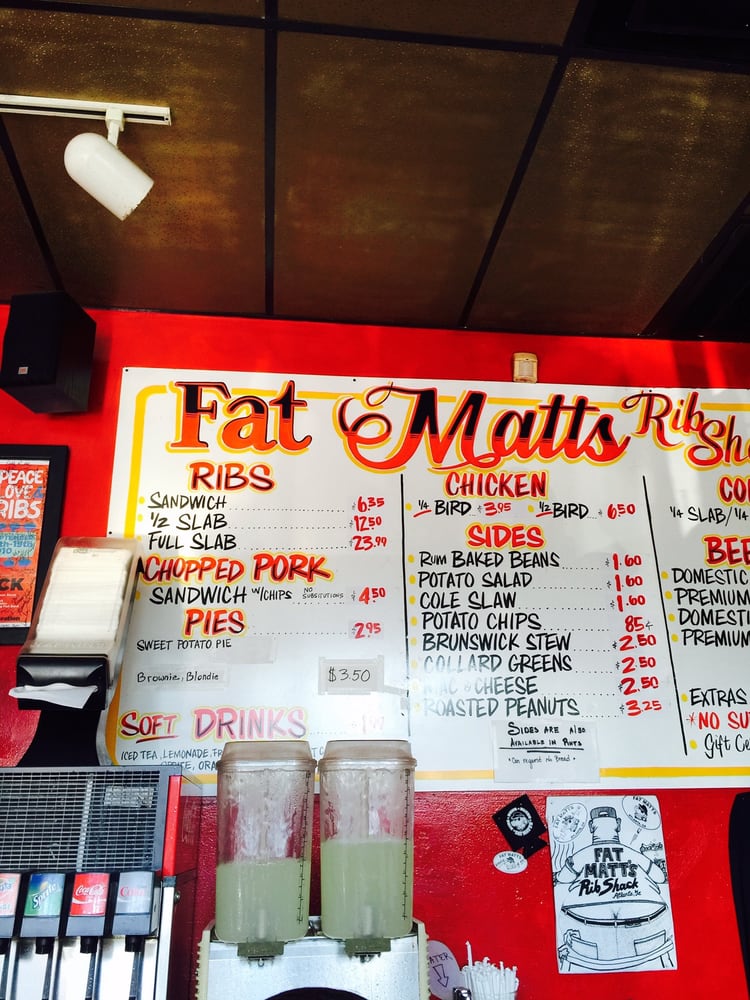 Fat Matts Rib Sh
RIBS
SANDWICH 6.35
1/2 SLAB 12.50
FULL SLAB 23.99
CHOPPED PORK
SANDWICH W/CHIPS NO SUBSTITUTIONS 4.50
PIES 2.95
SWEET POTATO PIE
Brownie, Blondie $3.50
SOFT DRINKS
ICED TEA, LEMONADE, FR
CHICKEN
1/4 BIRD 3.95 1/2 BIRD 6.50
SIDES
RUM BAKED BEANS 1.60
POTATO SALAD 1.60
COLE SLAW 1.60
POTATO CHIPS 85¢
BRUNSWICK STEW 2.50
COLLARD GREENS 2.50
MAC & CHEESE 2.50
ROASTED PEANUTS 3.25
SIDES ARE AlSO
AVAILABLE IN PINTS
* Can request no Bread *
CO
1/4 SLAB/1/4
BEE
DOMESTIC
PREMIUM
DOMESTI
PREMIUM
EXTRAS
*NO SU
Gift Ce
PEACE
LOVE
RIBS
Sprite
Coca-Cola
FAT
MATT'S
Rib Shack
Atlanta, Ga